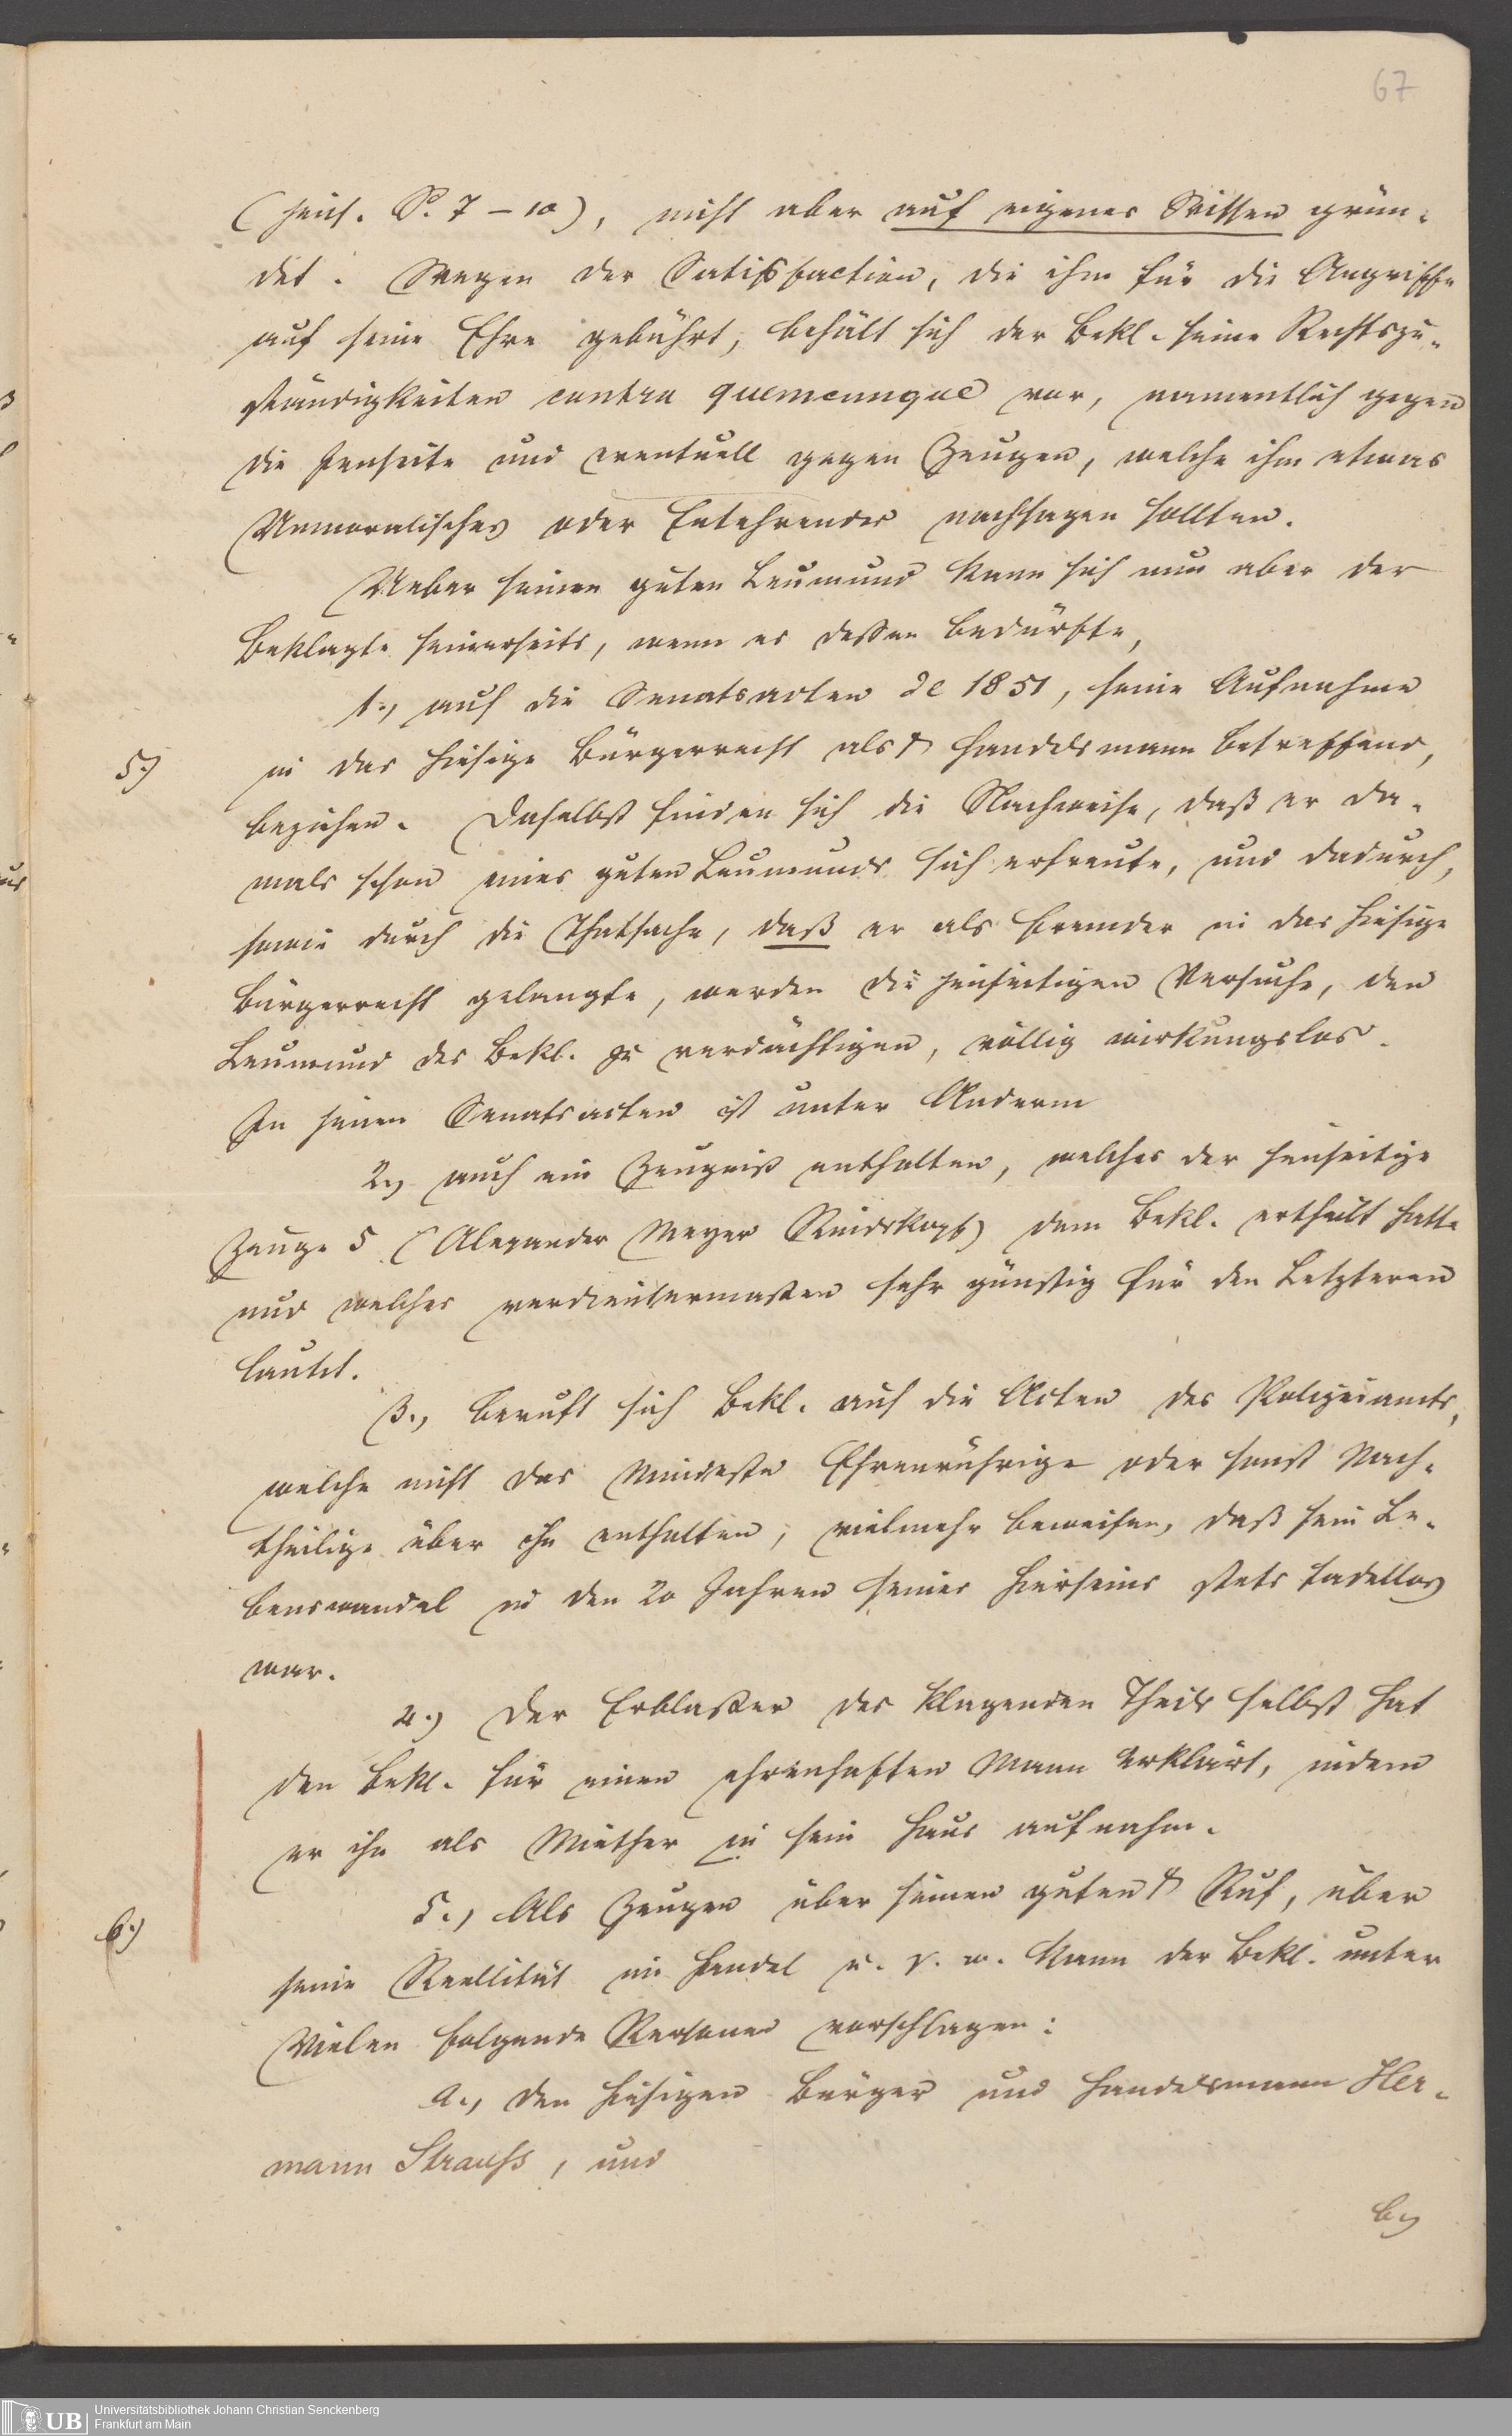 67
(jens. S. 7 – 10), nicht aber auf eigenes Wissen grün-
det. Wegen der Satisfaction, die ihm für die Angriffe
auf seine Ehre gebührt, behält sich der Bekl. seine Rechtszu-
ständigkeiten contra quemcunque vor, namentlich gegen
die Jenseite und eventuell gegen Zeugen, welche ihm etwas
Unmoralisches oder Entehrendes nachsagen sollten.
Ueber seinen guten Leumund kann sich nun aber der
Beklagte seinerseits, wenn es dessen bedürfte,
1., auf die Senatsacten de 1851, seine Aufnahme
5.) in das hiesige Bürgerrecht als Handelsmann betreffend,
beziehen. Daselbst finden sich die Nachweise, daß er da-
mals schon eines guten Leumunds sich erfreute, und dadurch,
sowie durch die Thatsache, daß er als Fremder in das hiesige
Bürgerrecht gelangte, werden die jenseitigen Versuche, den
Leumund des Bekl. zu verdächtigen, völlig wirkungslos.
In jenen Senatsacten ist unter Anderm
2., auch ein Zeugniß enthalten, welches der jenseitige
Zeuge 5 (Alexander Meyer Rindskopf) dem Bekl. ertheilt hatte
und welches verdientermassen sehr günstig für den Letzteren
lautet.
3., beruft sich Bekl. auf die Acten des Polizeiamts,
welche nicht das Mindeste Ehrenrührige oder sonst Nach-
theilige über ihn enthalten, vielmehr beweisen, daß sein Le-
benswandel in den 20 Jahren seines Hierseins stets tadellos
war.
4.) Der Erblasser des klagenden Theils selbst hat
den Bekl. für einen ehrenhaften Mann erklärt, indem
er ihn als Miether in sein Haus aufnahm.
6.) 5., Als Zeugen über seinen guten Ruf, über
seine Reellität im Handel u. s. w. kann der Bekl. unter
Vielen folgende Personen vorschlagen:
a., den hiesigen Bürger und Handelsmann Her-
mann Strauss, und
b.,
UB Universitätsbibliothek Johann Christian Senckenberg
Frankfurt am Main